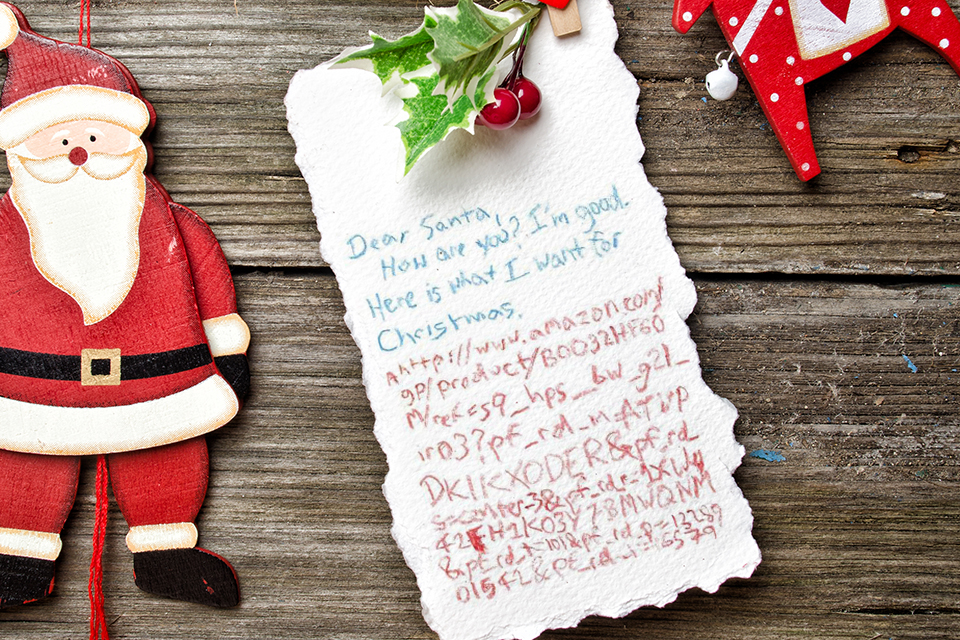 Dear Santa,
How are you? I'm good.
Here is what I want for
Christmas.
http://www.amazon.com/
gp/product/B0032HF60
M/ref=s9_hps_bw_g21_
ir03?pf_rd_m=ATVP
DKIKX0DER&pf_rd_
s=center-3&pf_rd_r=1XWJ4
42FH1K03Y78MWQNM
&pf_rd_t=101&pf_rd_p=13289
01542&pf_rd_i=16579